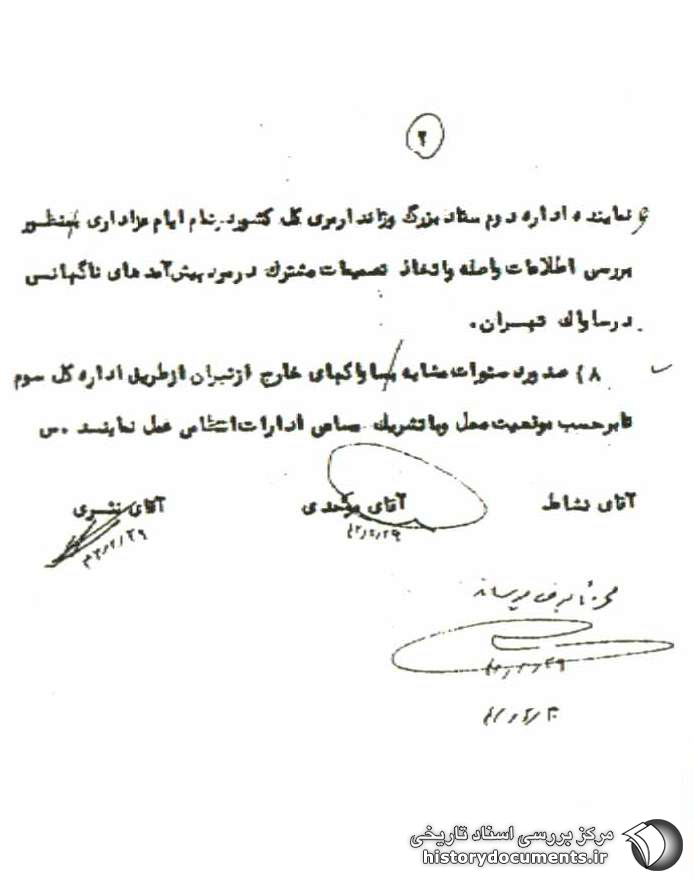 ۲
و نماینده اداره دوم ستاد بزرگ و ژاندارمری کل کشور در تمام ایام عزاداری بمنظور
بررسی اطلاعات واصله و اتخاذ تصمیمات مشترک در مورد پیش آمدهای ناگهانی
در ساواک تهران.
۸) صدور دستورات مشابه بساواکهای خارج از تهران از طریق اداره کل سوم
تا بر حسب موقعیت محل و با تشریک مساعی ادارات انتظامی عمل نمایند . س
آقای نشاط آقای موحدی آقای نشری
۴۲/۲/۲۹ ۴۲/۲/۲۹
محترما بعرض میرساند
۴۲/۲/۲۹
۴۲/۲/۳۰
مرکز بررسی اسناد تاریخی
historydocuments.ir